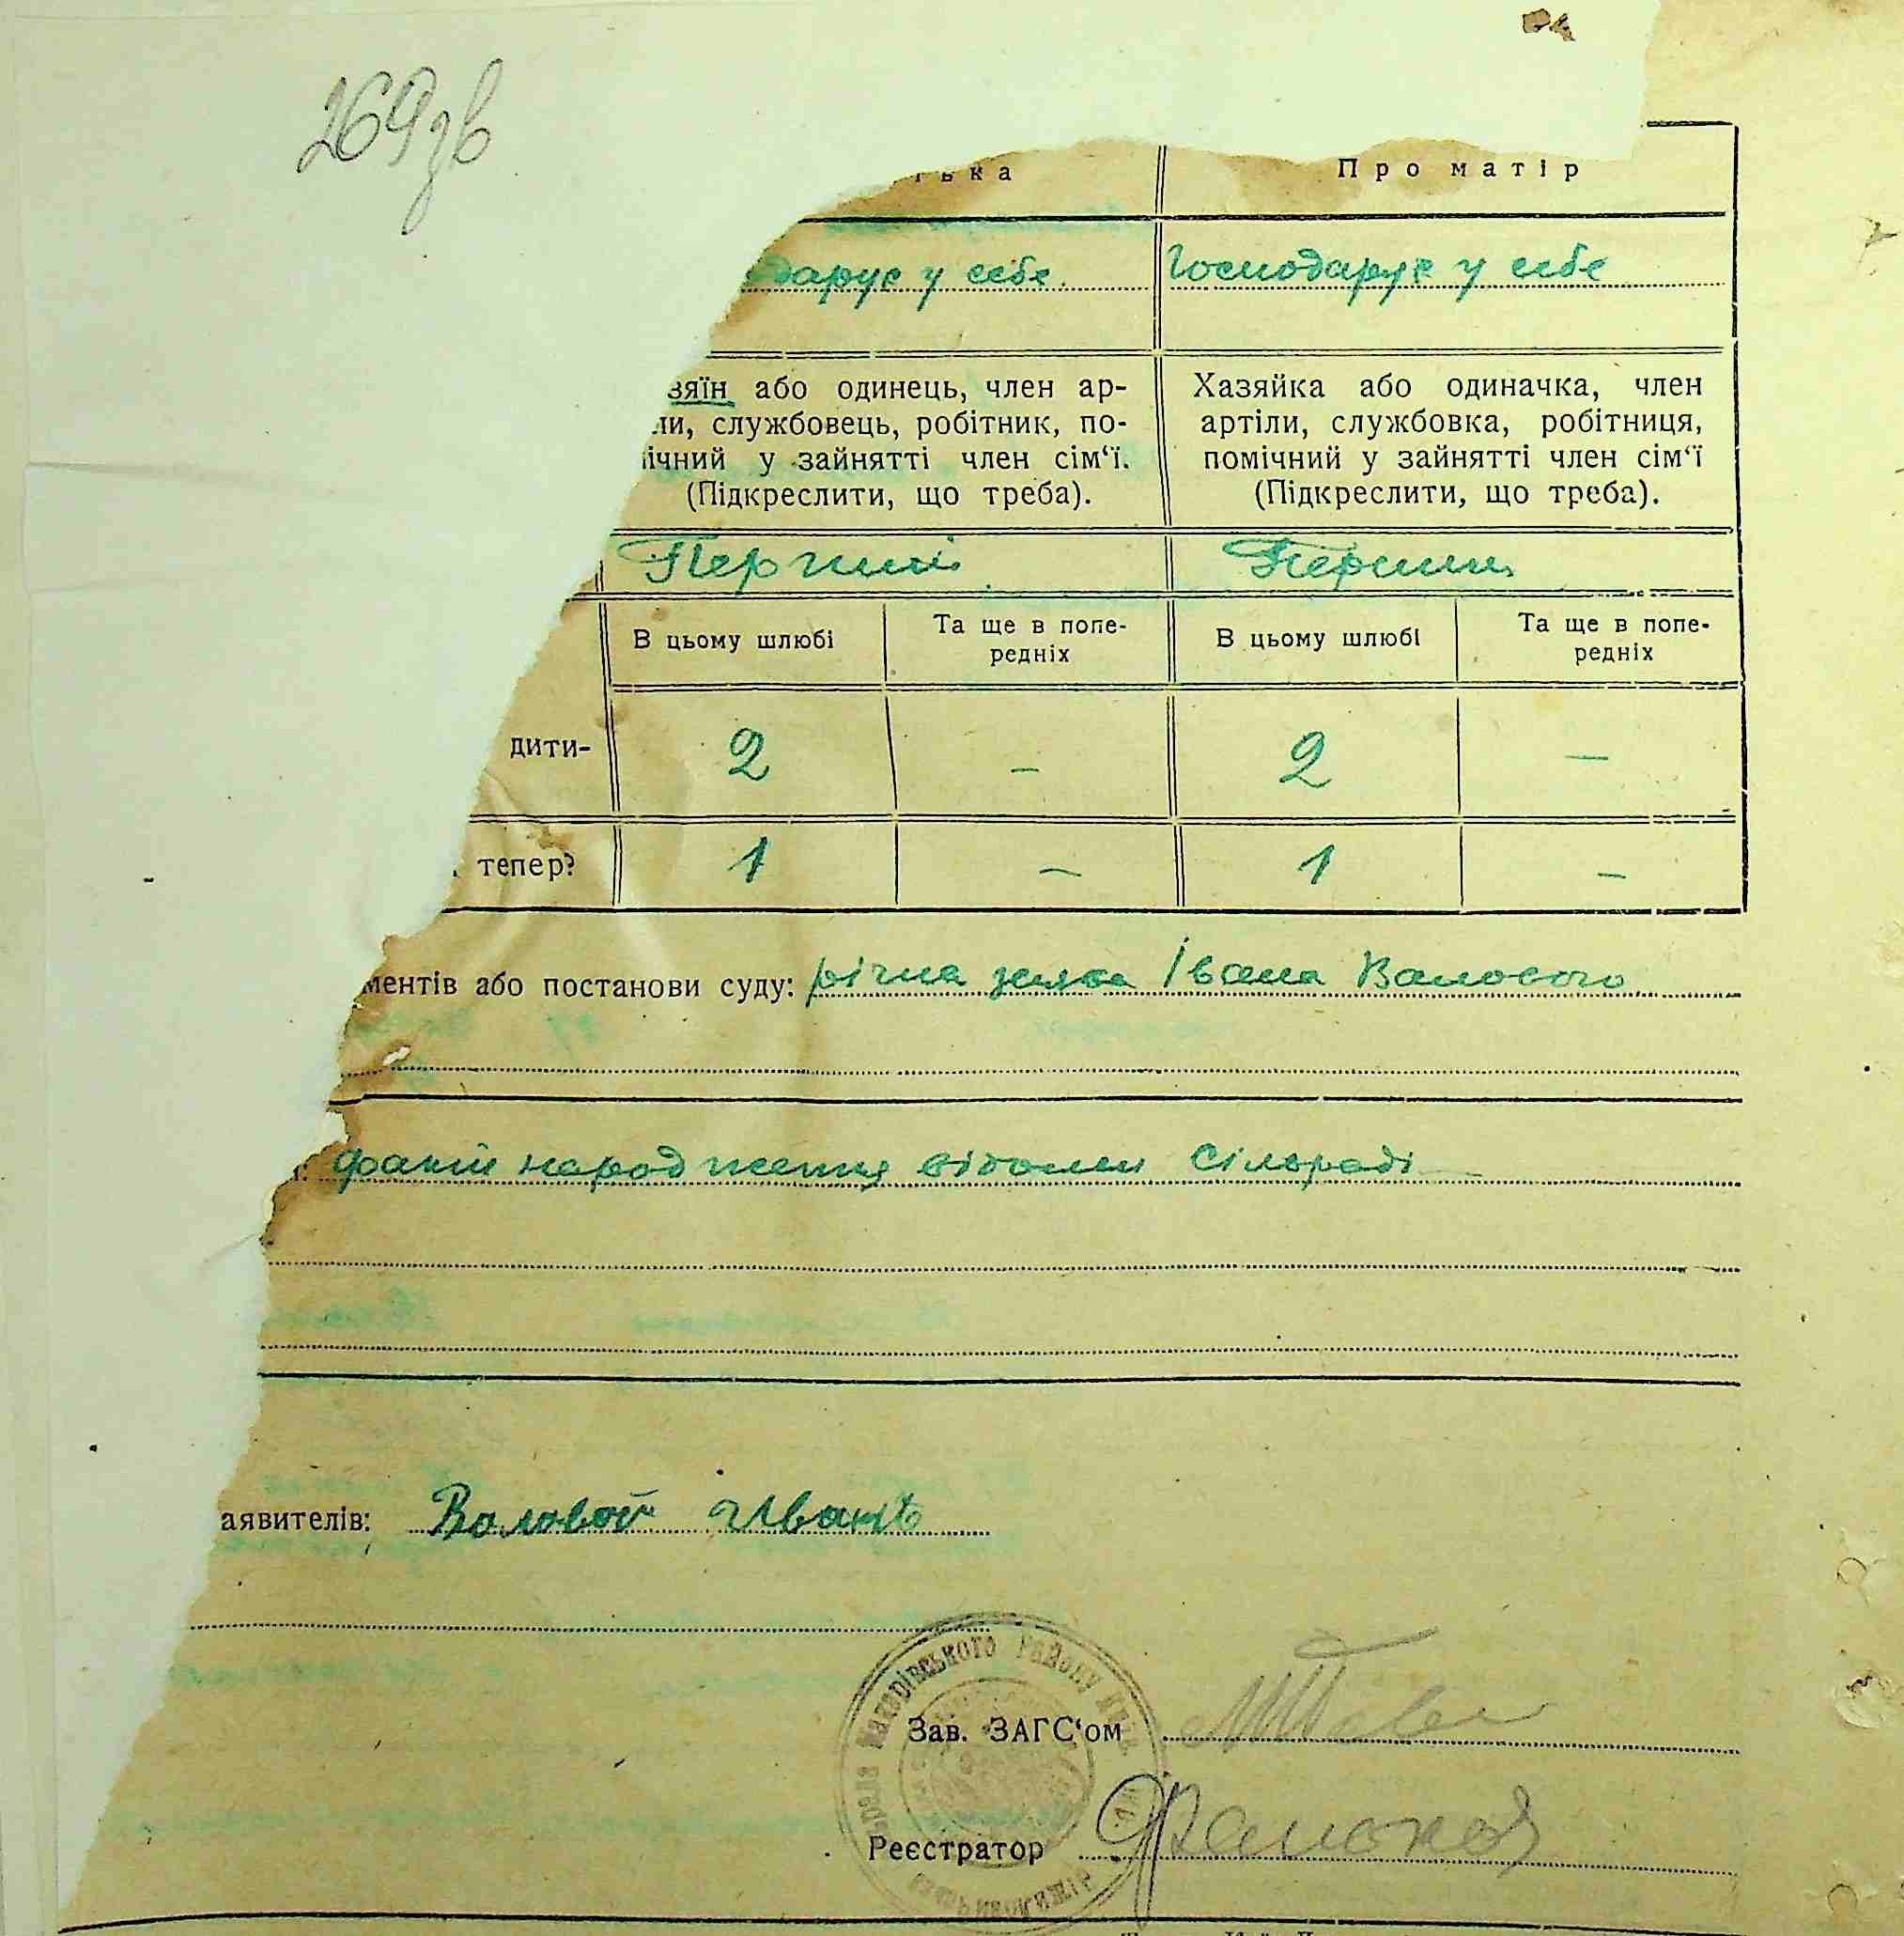 269зв
тька Про матір
дарує у себе Господарує у себе
зяїн або одинець, член ар- Хазяйка або одиначка, член
ли, службовець, робітник, по- артіли, службовка, робітниця,
мічний у зайнятті член сім‘ї. помічний у зайнятті член сім‘ї
(Підкреслити, що треба). (Підкреслити, що треба).
Перший Перший
В цьому шлюбі Та ще в попе- В цьому шлюбі Та ще в попе-
редніх редніх
дити- 2 — 2 —
тепер? 1 — 1 —
ментів або постанови суду: заява Івана Валового
народження відомий сільраді
аявителів: Валовой Иванъ
Макарівського району
Зав. ЗАГС‘ом
Реєстратор